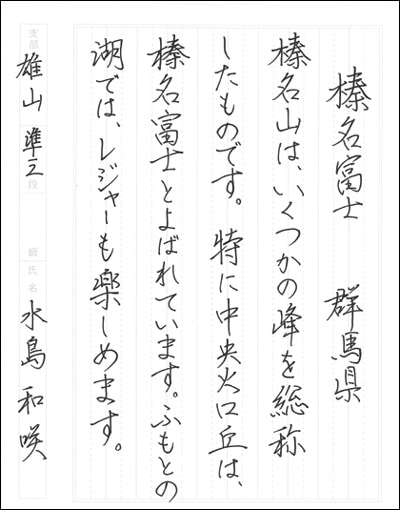 榛名富士 群馬県
榛名山は、いくつかの峰を総称
したものです。特に中央火口丘は、
榛名富士とよばれています。ふもとの
湖では、レジャーも楽しめます。
支部 雄山 準三段 級 氏名 水島和咲